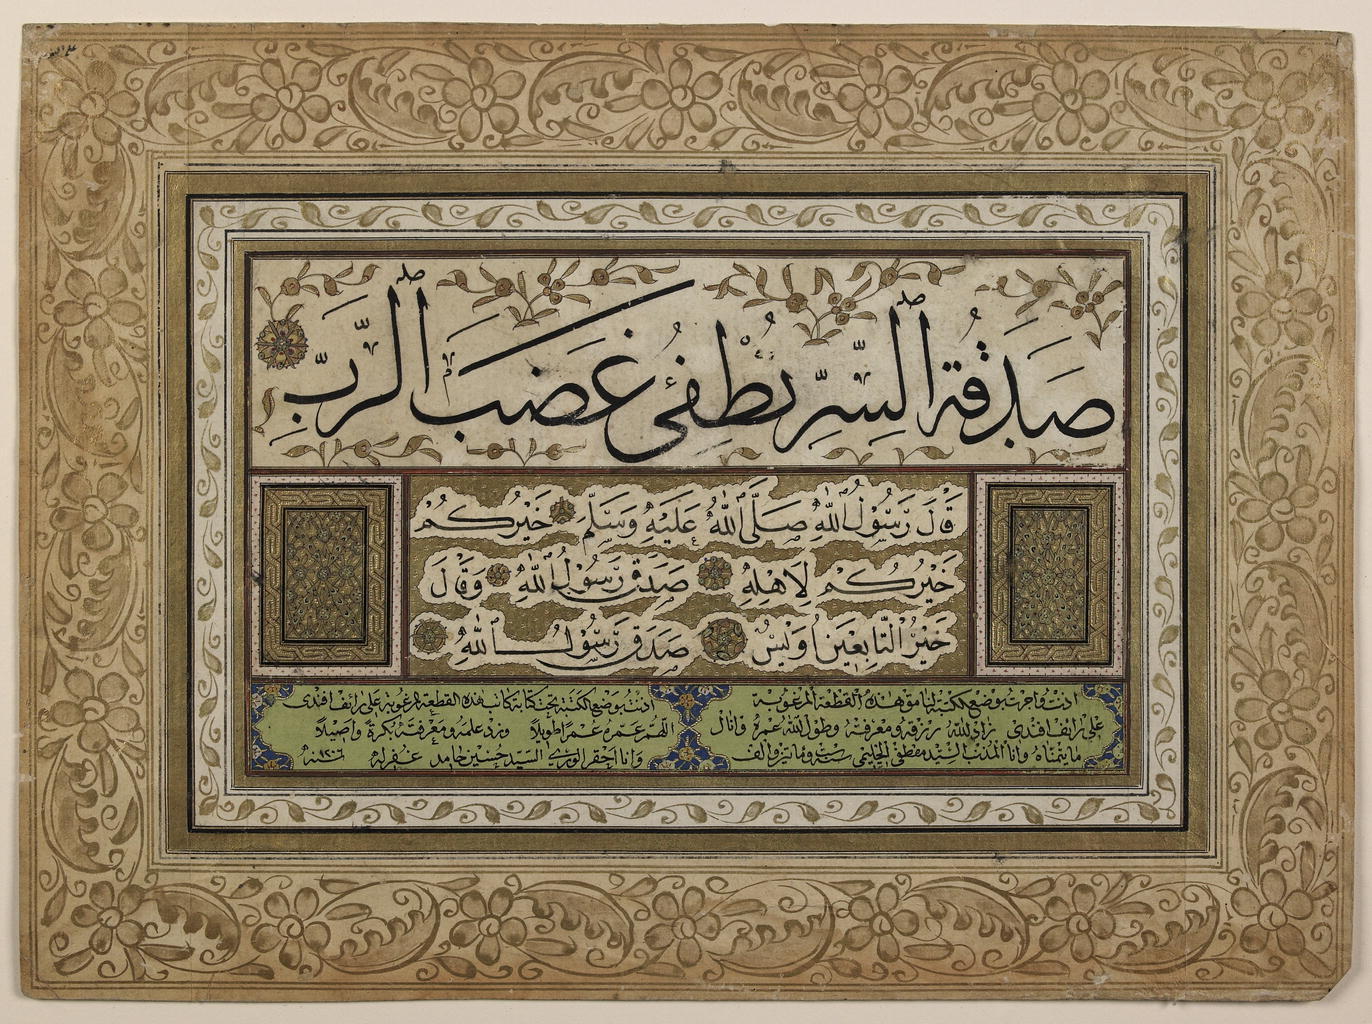 صَدَقَةُ السِّرِّ تُطْفِئُ غَضَبَ الرَّبِّ
قَالَ رَسُوْلُ اللّٰهِ صَلَّى اللّٰهُ عَلَيْهِ وَسَلَّمِ خَيْرُكُمْ
خَيْرُكُمْ لِاَهْلِهِ صَدَقَ رَسُوْلُ اللّٰهِ وَقَالَ
خَيْرُ التَّابِعَيْنَ اُوَيْسٌ صَدَقَ رَسُوْلُ اللّٰهِ
اذنت واجزت بوضع الكتبة لهذه القطعة المرغوبة
على رائف افندى زاد الله رزقه ومعرفته وطول الله عمره وانال
ما يتمناه وانا المذنب السيد مصطفى الحليمى سنة ومايتين والف
اذنت بوضع الكتبة تحت كتابة كاتب هذه القطعة المرغوبة على رائف افندى
اللهم عمره عمرا طويلا وزد علمه ومعرفته بكرة واصيلا
وانا احقر الورى السيد حسين حامد غفر له سنة ١٢٠٦